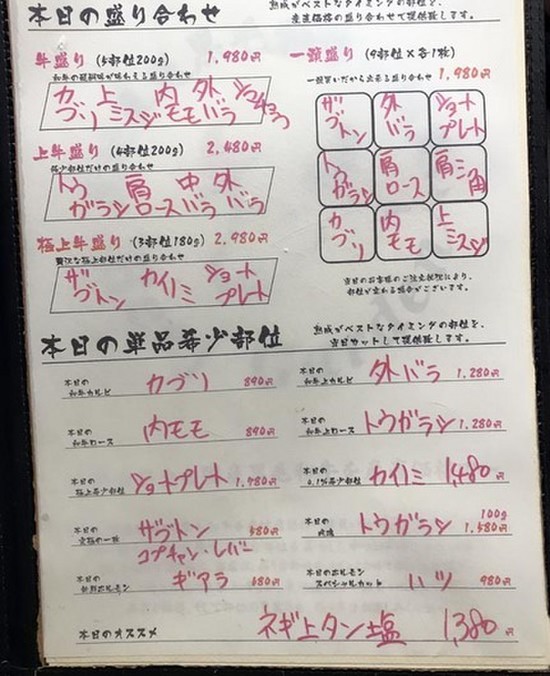 本日の盛り合わせ
熟成がベストなタイミングの部位を、
産直価格の盛り合わせて提供致します。
牛盛り (5部位200g) 1,980円
和牛の醍醐味が味わえる盛り合わせ
カブリ 上ミスジ 内モモ 外バラ
上牛盛り (4部位200g) 2,480円
希少部位だけの盛り合わせ
トウガラシ 肩ロース 中バラ 外バラ
極上牛盛り (3部位180g) 2,980円
贅沢な極上部位だけの盛り合わせ
ザブトン カイノミ ショートプレート
一頭盛り (9部位×各1枚)
一頭買いだから出来る盛り合わせ 1,980円
ザブトン 外バラ ショートプレート
トウガラシ 肩ロース 肩三角
カブリ 内モモ 上ミスジ
当日のお客様のご注文状況により、
部位が変わる場合がございます。
本日の単品希少部位
熟成がベストなタイミングの部位を、
当日カットして提供致します。
本日の和牛カルビ カブリ 890円
本日の和牛上カルビ 外バラ 1,280円
本日の和牛ロース 内モモ 890円
本日の和牛上ロース トウガラシ 1,280円
本日の極上希少部位 ショートプレート 1,780円
本日の0.1%希少部位 カイノミ 1,480円
本日の究極の一枚 ザブトン 580円
本日の トウガラシ 100g 1,580円
コプチャン・レバー
本日の新鮮ホルモン ギアラ 680円
本日のホルモンスペシャルカット ハツ 980円
本日のオススメ ネギ上タン塩 1,380円